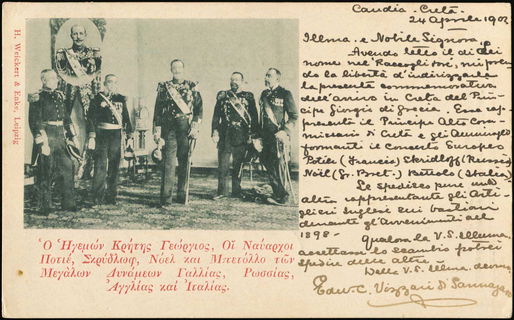 H. Weickert & Enke, Leipzig
Ὁ Ἡγεμὼν Κρήτης Γεώργιος, Οἱ Ναύαρχοι
Ποτιέ, Σκρύδλωφ, Νόελ καὶ Μπετόλλο τῶν
Μεγάλων Δυνάμεων Γαλλίας, Ρωσσίας,
Ἀγγλίας καὶ Ἰταλίας.
Candia - Creta
24 Aprile 1902
Illma. e Nobile Signora,
Avendo letto il di Lei
nome nel "Raccoglitore", mi pren-
do la libertà d'indirizzarle
la presente commemorativa
dell'arrivo in Creta del Prin-
cipe Giorgio di Grecia. Essa rap-
presenta il Principe Alto Com-
missario di Creta e gli Ammiragli
formanti il Concerto Europeo
Potier (Francia) Skridloff (Russia)
Noël (Gr. Bret.) Bettolo (Italia)
Le spedisco pure un'
altra rappresentante gli Arti-
glieri Inglesi sui bastioni
durante gl'avvenimenti del
1898 -
Qualora la V.S. Illma.
accettasse lo scambio potrei
spedire delle altre.
Della V.S. Illma. devmo.
Edw. C. Vizzari di Sannazaro